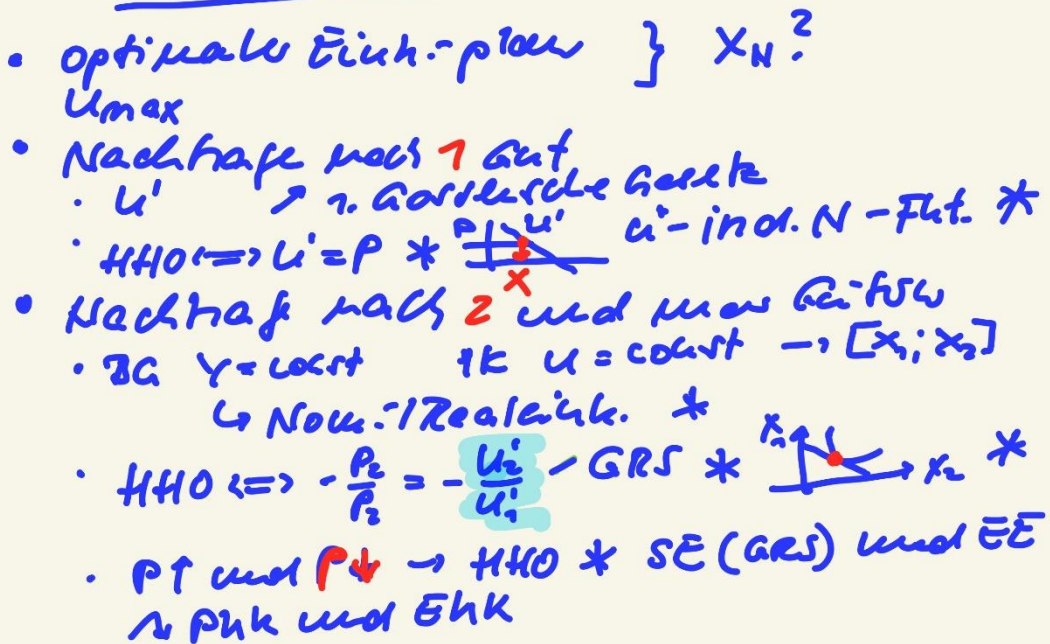 • optimaler Eink.-plan } XN?
Umax
• Nachfrage nach 1 Gut
· U' ↗ 1. Gossensche Gesetz
· HHO <=> U' = P * P U' X U'-ind. N-Fkt. *
• Nachfrage nach 2 und mehr Gü-
· BG Y = const IK U = const → [X1; X2]
↳ Nom.-/Realeink. *
· HHO <=> - P2/P2 = - U2'/U1' - GRS * X1 X2 *
· P↑ und P↓ → HHO * SE (GRS) und EE
PhK und EhK